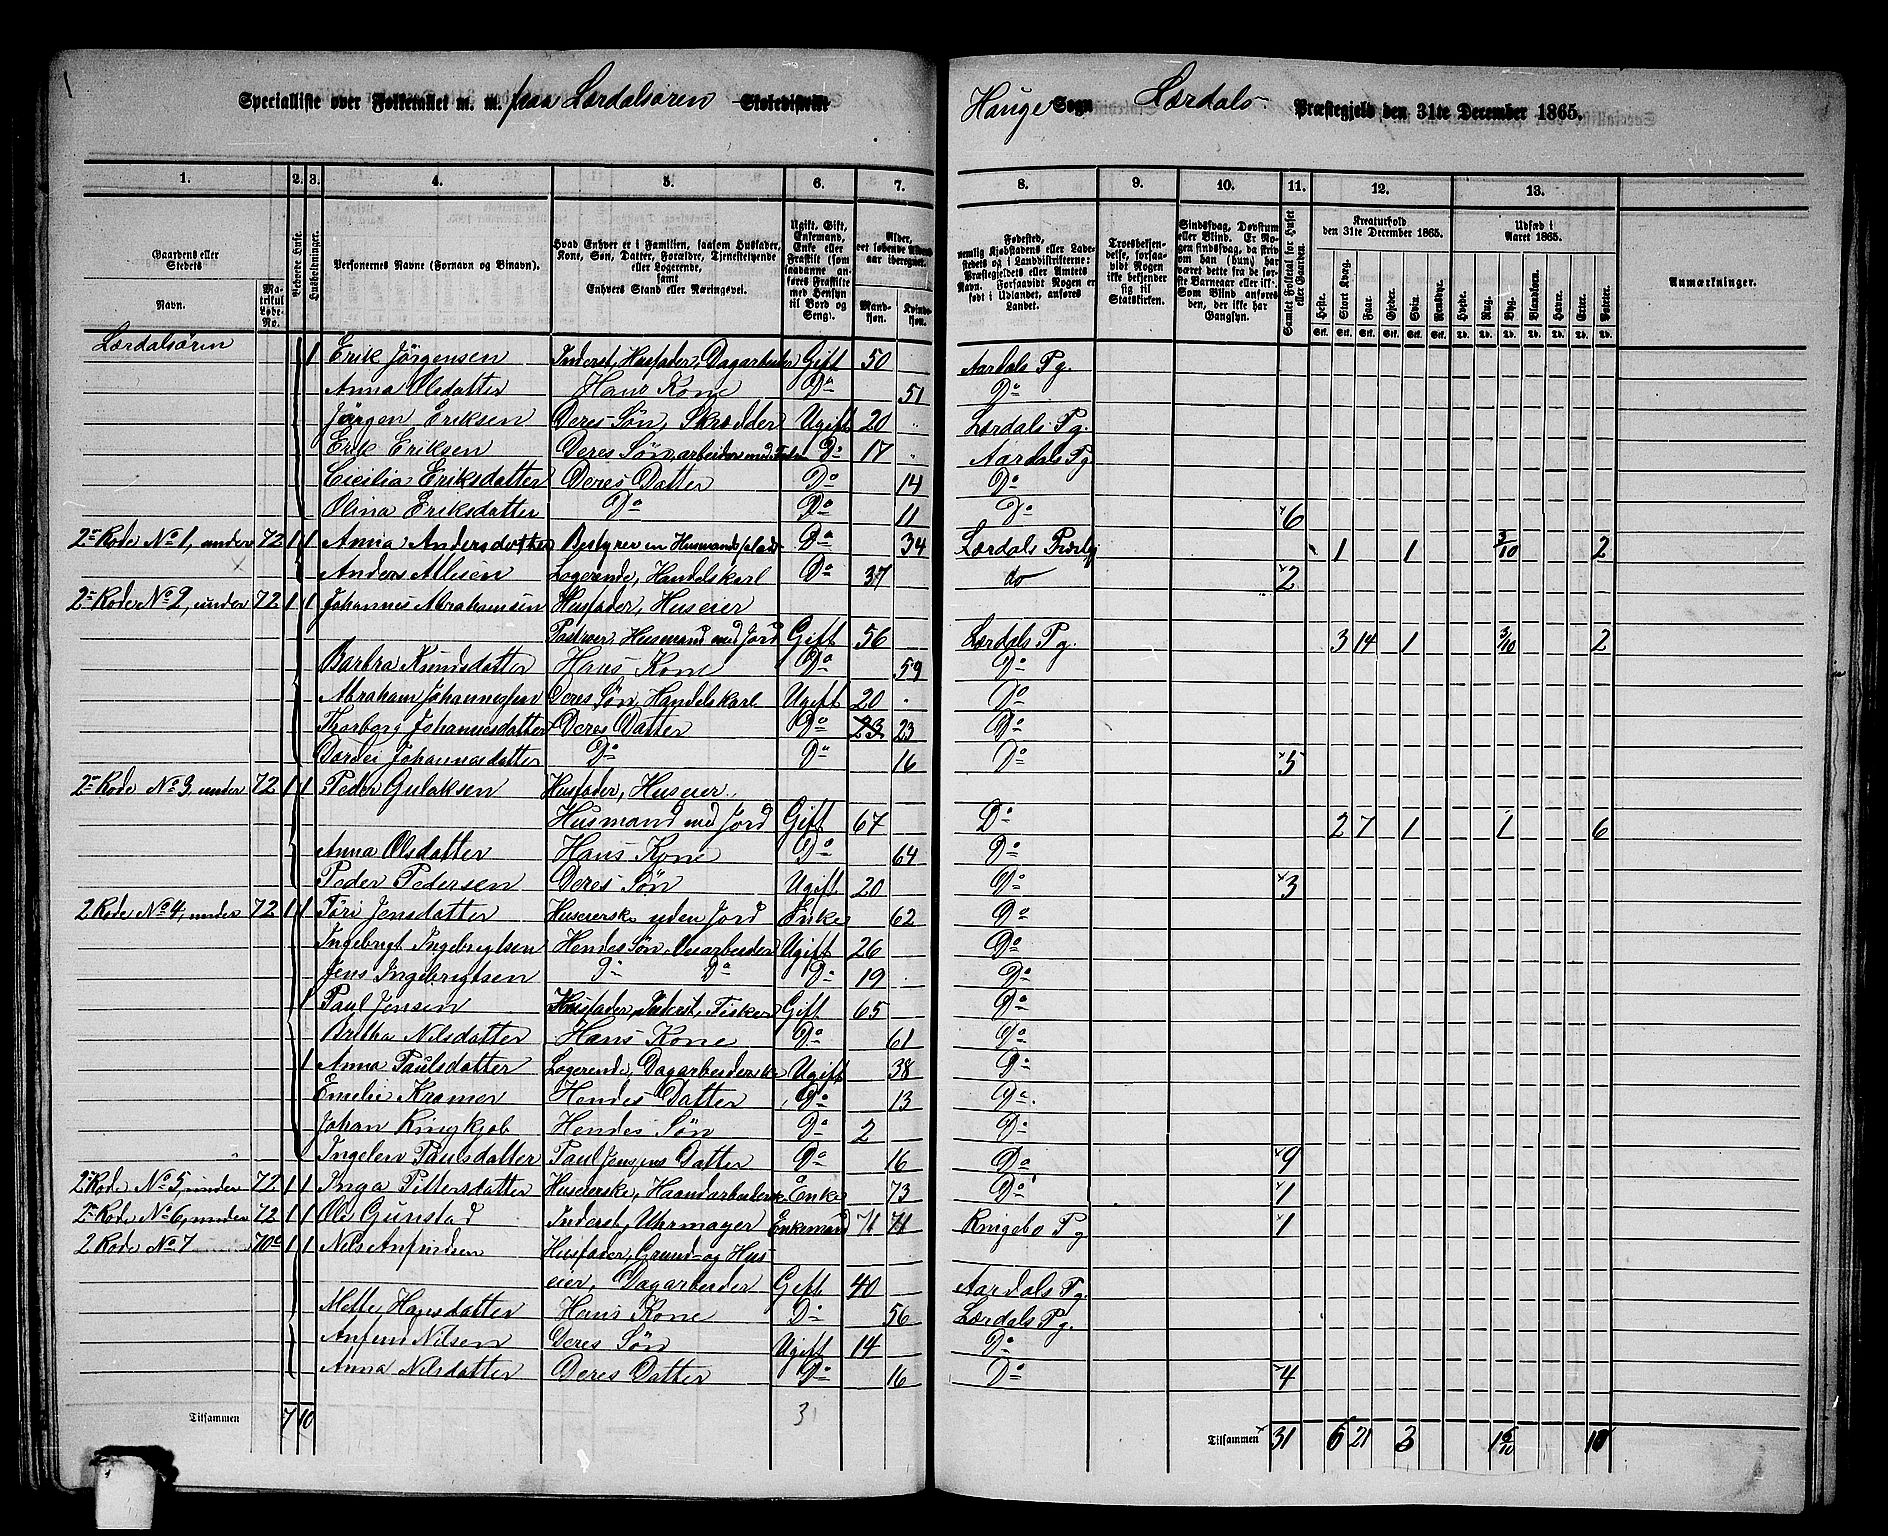 Specialliste over Folketallet m. m. paa Lærdalsøren Skoledistrikt Hauge Sogn Lærdals Præstegjeld den 31te December 1865.
1. 2. 3. 4. 5. 6. 7. 8. 9. 10. 11. 12. 13.
Gaardens eller Stedets Navn. Matrikul Løbe-No. Beboede Huse. Husholdninger. Personernes Navne (Fornavn og Binavn). Hvad Enhver er i Familien, saasom Husfader, Kone, Søn, Datter, Forældre, Tjenestetyende eller Logerende, samt Enhvers Stand eller Næringsvei. Ugift, Gift, Enkemand, Enke eller Fraskilt (som saadanne anføres Fraskilte med Hensyn til Bord og Seng). Alder, det løbende Alders-aar iberegnet. Mandkjøn. Kvindekjøn.
Fødested, nemlig Kjøbstadens eller Ladestedets og i Landdistrikterne: Præstegjeldets eller Amtets Navn. Forsaavidt Nogen er født i Udlandet, anføres Landet. Troesbekjendelse, forsaavidt Nogen ikke bekjender sig til Statskirken. Sindssvag, Døvstum eller Blind. Samlet Folketal for Huset eller Gaarden. Kreaturhold den 31te December 1865. Heste. Stort Kvæg. Faar. Gjeder. Sviin. Rensdyr. Udsæd i Aaret 1865. Hvede. Rug. Byg. Blandkorn. Havre. Erter. Poteter. Anmærkninger.
Lærdalsøren 1 Erik Jörgensen Inderst, Husfader, Dagarbeider Gift 50 Aardals Pg.
Anna Olsdatter Hans Kone Do 51 Do
Jörgen Eriksen Deres Søn, Skrædder Ugift 20 Lærdals Pg.
Erik Eriksen Deres Søn, Do 17 Aardals Pg
Cicilia Eriksdatter Deres Datter Do 14 Do
Olina Eriksdatter Do Do 11 Do 6
2en Rode No 1, under 72 1 1 Anna Andersdatter Bestyrer en Husmandsplads Do 34 Lærdals 1 1 3/10 2
Anders Atlesen Logerende, Handelskarl Do 37 do 2
2en Rode No 2, under 72 1 1 Johannes Abrahamsen Husfader, Huseier
Husmand med Jord Gift 56 Lærdals Pg. 3 14 1 3/10 2
Barbra Knudsdatter Hans Kone Do 59 Do
Abraham Johannessen Deres Søn, Handelskarl Ugift 20 Do
Thorborg Johannesdatter Deres Datter Do 23 23 Do
Johannesdatter Do Do 16 Do 5
2en Rode No 3, under 72 1 1 Peder Gulaksen Husfader, Huseier,
Husmand med Jord Gift 67 Do 2 7 1 1 6
Anna Olsdatter Hans Kone Do 64 Do
Peder Pedersen Deres Søn Ugift 20 Do 3
2 Rode No 4, under 72 1 1 Jensdatter Huseierske uden Jord Enke 62 Do
Ingebrigt Ingebrigtsen Hendes Søn, Ugift 26 Do
Jens Ingebrigtsen Do Do Do 19 Do
1 Paul Jensen Husfader, Inderst, Fisker Gift 65 Do
Britha Nilsdatter Hans Kone Do 61 Do
1 Anna Paulsdatter Logerende, Dagarbeiderske Ugift 38 Do
Emelie Kramer Hendes Datter Do 13 Do
Johan Ringkjøb Hendes Søn Do 2 Do
Ingelen Paulsdatter Paul Jensens Datter Do 16 Do 9
2en Rode No 5, under 72 1 1 Inga Pettersdatter Huseierske, Haandarbeidersk Enke 73 Do 1
2en Rode No 6, under 72 1 1 Ole Gunstad Inderst, Uhrmager Enkemand 71 71 Ringebo Pg 1
2 Rode No 7 70a 1 1 Nils Anfindsen Husfader, Grund- og Hus-
eier, Dagarbeider Gift 40 Aardals Pg.
Mette Hansdatter Hans Kone Do 56 Lærdals Pg.
Anfind Nilsen Deres Søn Ugift 14 Do
Anna Nilsdatter Deres Datter Do 16 Do 4
Tilsammen 7 10 31 Tilsammen 31 6 21 3 1 6/10 10